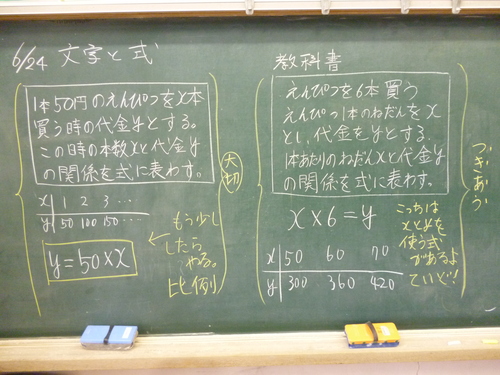 6/24 文字と式
1本50円のえんぴつをx本
買う時の代金yとする。
この時の本数xと代金y
の関係を式に表わす。
大切
x 1 2 3 …
y 50 100 150 …
y=50×x
もう少し
したら
やる。
比例
教科書
えんぴつを6本買う
えんぴつ1本のねだんをx
とし、代金をyとする。
1本あたりのねだんxと代金y
の関係を式に表わす。
x×6=y
x 50 60 70
y 300 360 420
こっちは
xとyを
使う式
があるよ
ていど!!